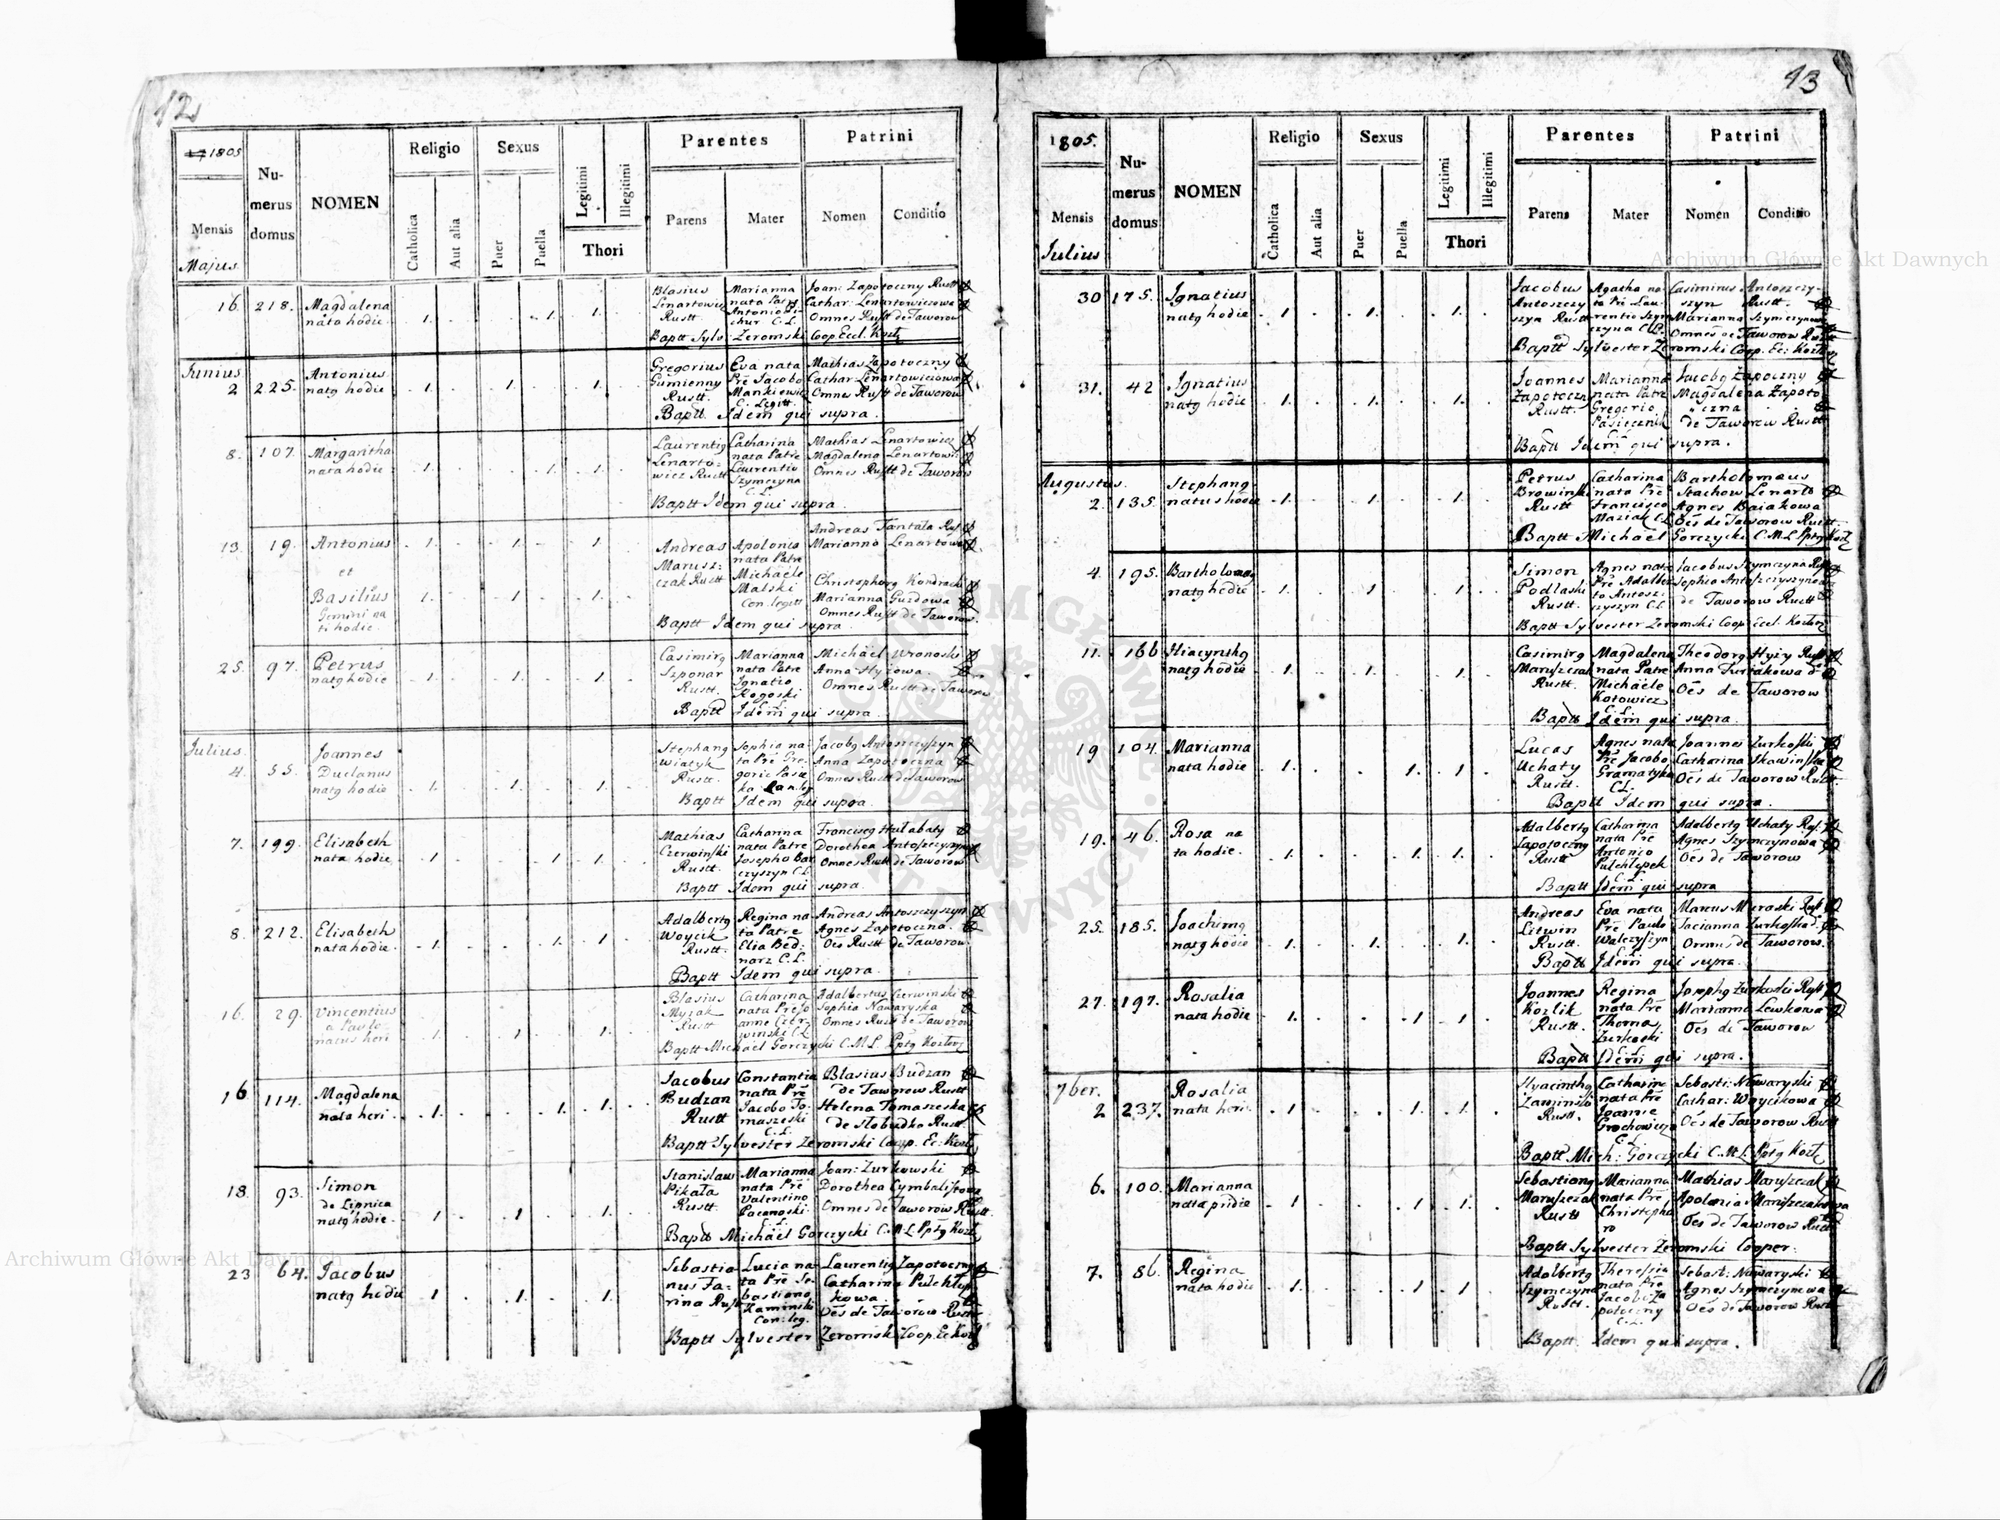 12
1805
Mensis
Majus
Nu-
merus
domus
NOMEN
Religio
Catholica
Aut alia
Sexus
Puer
Puella
Legitimi
Illegitimi
Thori
Parentes
Parens
Mater
Patrini
Nomen
Conditio
16 218. Magdalena
nata hodie
Blasius
Lenartowicz
Rustt.
Marianna
nata Patre
Antonio
C. L.
Joan: Zapotoczny Rustt
Cathar: Lenartowiczowa
Omnes Rustt de Taworow
Baptt Sylv: Zeromski Coop Eccl. Kozł.
Junius
2 225. Antonius
natg hodie
Gregorius
Gumienny
Rustt.
Eva nata
Pre Jacobo
Mankiewicz
C. Legitt.
Mathias Zapotoczny
Cathar Lenartowiczowa
Omnes Rustt de Taworow
Baptt. Idem qui supra.
8. 107. Margaritha
nata hodie
Laurentig
Lenarto-
wicz Rustt
Catharina
nata Patre
Laurentio
Szymczyna
C. L.
Mathias Lenartowicz
Magdalena Lenartowicz
Omnes Rustt de Taworow
Baptt Idem qui supra.
13. 19. Antonius
et
Basilius
Gemini na
ti hodie.
Andreas
Marusz-
czak Rustt
Apolonia
nata Patre
Michaele
Malski
Con. legitt
Andreas Tantala Rustt
Marianna Lenartowa
Christophorg Kondracki
Marianna Guzdowa
Omnes Rustt de Taworow.
Baptt Idem qui supra.
25. 97. Petrus
natg hodie
Casimirg
Szponar
Rustt.
Marianna
nata Patre
Ignatio
Rogoski
C. L.
Michael Wronoski
Anna Hyzowa.
Omnes Rustt de Taworow
Baptt Idem qui supra.
Julius.
4. 55. Joannes
Duclanus
natg hodie
Stephang
Wiatyk
Rustt.
Sophia na-
ta Pre Gre-
gorio Pasie
ka Con. leg
Jacobg Antoszczyszyn
Anna Zapotoczna
Omnes Rustt de Taworow
Baptt Idem qui supra.
7. 199. Elisabeth
nata hodie.
Mathias
Czerwinski
Rustt.
Catharina
nata Patre
Josepho Bar
czyszyn C. L.
Franciscg Hułabaty
Dorothea Antoszczyszyn
Omnes Rustt de Taworow
Baptt Idem qui supra.
8. 212. Elisabeth
nata hodie.
Adalbertg
Woycik
Rustt.
Regina na
ta Patre
Elia Bed-
narz C. L.
Andreas Antoszczyszyn
Agnes Zapotoczna.
Oes Rustt de Taworow.
Baptt Idem qui supra.
16. 29. Vincentius
a Paulo
natus heri
Blasius
Myzak
Rustt
Catharina
nata Pre Jo
anne Czer-
winski C. L.
Adalbertus Czerwinski
Sophia Nawaryska
Omnes Rustt de Taworow
Baptt Michael Gorczycki C. M. L. Pptg Kozłoz
16 114. Magdalena
nata heri.
Jacobus
Budzan
Rustt
Constantia
nata Pre
Jacobo To-
maszeski
C. L.
Blasius Budzan
de Taworow Rustt
Helena Tomaszeska
de Slobudka Rustt.
Baptt Sylvester Zeromski Coop. Ec: Kozł.
18. 93. Simon
de Lipnica
natg hodie.
Stanislaw
Pikała
Rustt.
Marianna
nata Pre
Valentino
Pacanoski
C. L.
Joan: Zurkowski
Dorothea Cymbalistowa
Omnes de Taworow Rustt.
Baptt Michael Gorczycki C. M. L. Pptg Kozł.
23 64. Jacobus
natg hodie
Sebastia-
nus Fa-
rina Rustt
Lucia na-
ta Pre Se-
bastiano
Kaminski
Con: leg.
Laurentig Zapotoczny
Catharina Pulchłop
kowa.
Oes de Taworow Rustt
Baptt Sylvester Zeromski Coop. Ec Kozł
13
1805.
Mensis
Julius
Nu-
merus
domus
NOMEN
Religio
Catholica
Aut alia
Sexus
Puer
Puella
Legitimi
Illegitimi
Thori
Parentes
Parens
Mater
Patrini
Nomen
Conditio
30 175. Ignatius
natg hodie
Jacobus
Antoszczy
szyn Rustt
Agatha na-
ta Pre Lau-
rentio Szym
czyna C. L.
Casimirus Antoszczy-
szyn Rustt.
Marianna Szymczynowa
Omnes de Taworow Rustt
Baptt Sylvester Zeromski Coop. Ec: Kozłow
31. 42 Ignatius
natg hodie
Joannes
Zapotoczn
Rustt.
Marianna
nata Patre
Gregorio
Pasiecznik
Jacobg Zapoczny
Magdalena Zapoto
czna
de Taworow Rustt
Baptt Idem qui supra.
Augustus.
2. 135. Stephang
natus hodie
Petrus
Browinski
Rustt
Catharina
nata Pre
Francisco
Maziak C. L.
Bartholomaeus
Stachow Lenarto
Agnes Baiakowa
Oes de Taworow Rustt.
Baptt Michael Gorczycki C. M. L. Pptg Kozł
4. 195. Bartholomeg
natg hodie
Simon
Podlaski
Rustt.
Agnes nata
Pre Adalber
to Antosz-
czyszyn C. L.
Jacobus Szymczyna Rustt
Sophia Antoszczyszynowa
de Taworow Rustt
Baptt Sylvester Zeromski Coop Eccl. Kozłow
11. 166 Hiacynthg
natg hodie
Casimirg
Maruszczak
Rustt.
Magdalena
nata Patre
Michaele
Kotowicz
C. L.
Theodorg Hyzy Rustt
Anna Furtakowa
Oes de Taworow
Baptt Idem qui supra.
19 104. Marianna
nata hodie
Lucas
Uchaty
Rustt.
Agnes nata
Pre Jacobo
Gramatyka
C. L.
Joannes Zurkoski
Catharina Skowinska
Oes de Taworow Rustt.
Baptt Idem qui supra.
19. 46. Rosa na
ta hodie.
Adalbertg
Zapotoczny
Rustt
Catharina
nata Pre
Antonio
Pulchłopek
C. L.
Adalbertg Uchaty Rst.
Agnes Szymczynowa
Oes de Taworow
Baptt Idem qui supra
25. 185. Joachimg
natg hodie
Andreas
Litwin
Rustt.
Eva nata
Pre Paulo
Walczyszyn
Marcus Mroski Rustt
Tacianna Zurkoska
Omnes de Taworow.
Baptt Idem qui supra.
27. 197. Rosalia
nata hodie
Joannes
Kozlik
Rustt.
Regina
nata Pre
Thoma
Zurkoski
C. L.
Josephg Zurkoski Rustt
Marianna Lewkowa
Oes de Taworow
Baptt Idem qui supra.
7ber.
2 237. Rosalia
nata heri
Hyacinthg
Zaminski
Rustt.
Catharin
nata Pre
Joanne
Grochowicza
C. L.
Sebasti: Nawaryski
Cathar: Woycikowa
Oes de Taworow Rustt
Baptt Mich: Gorczycki C. M. L. Pptg Kozł
6. 100. Marianna
nata pridie
Sebastiang
Maruszczak
Rustt
Marianna
nata Pre
Christopho
ro
Mathias Maruszczak
Apolonia Maruszczakowa
Oes de Taworow Rustt
Baptt Sylvester Zeromski Cooper.
7. 86. Regina
nata hodie
Adalbertg
Szymczyna
Rustt.
Theressia
nata Pre
Jacobo Za
potoczny
C. L.
Sebasti: Nawaryski
Agnes Szymczynowa
Oes de Taworow Rustt
Baptt. Idem qui supra.
Archiwum Główne Akt Dawnych
Archiwum Główne Akt Dawnych